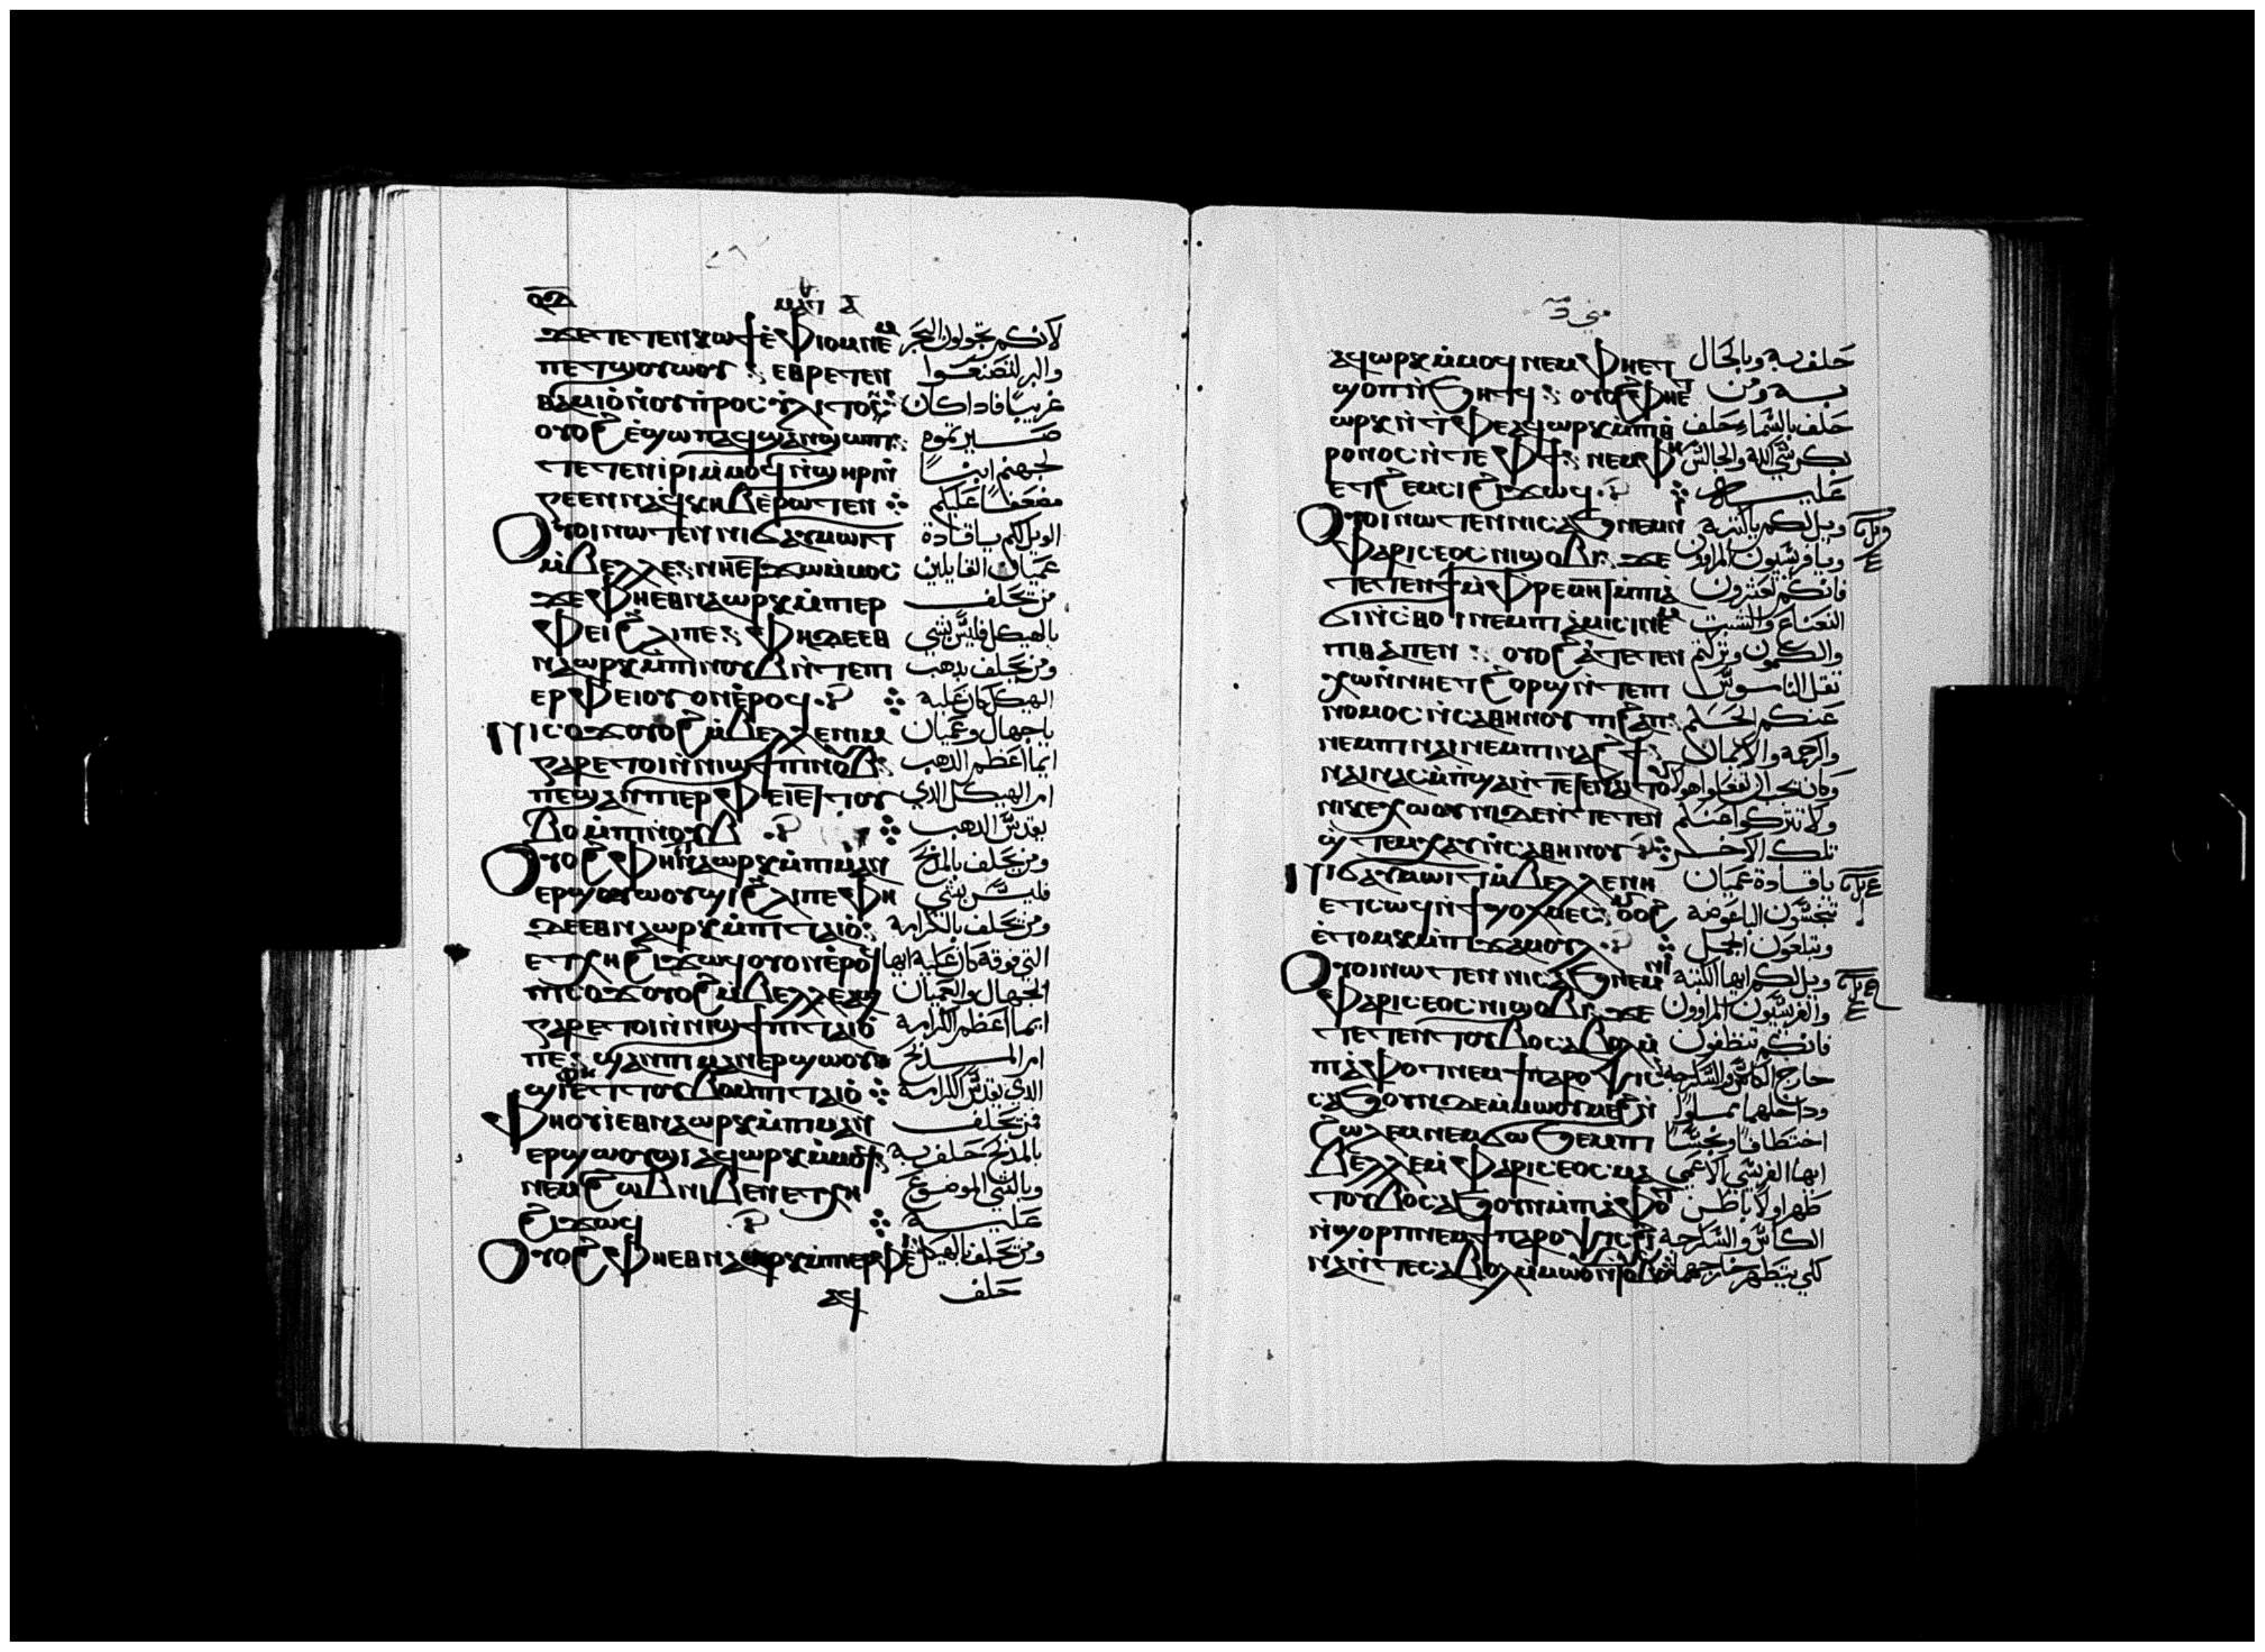 ϫⲉ ⲧⲉⲧⲉⲛⲕⲱϯ ⲉ̀ⲫⲓⲟⲙ ⲛⲉⲙ لانكم تجولون البحر
ⲡⲉⲧϣⲟⲩⲱⲟⲩ ⲉⲑⲣⲉⲧⲉⲛ والبر لتصنعوا
ⲑⲁⲙⲓⲟ̀ ⲛ̀ⲟⲩⲡ̀ⲣⲟⲥⲏⲗⲓⲧⲟⲥ غريبًا فاذا كان
ⲟⲩⲟϩ ⲉ̀ϣⲱⲡ ⲁϥϣⲁⲛϣⲱⲡⲓ صير تموه
ⲧⲉⲧⲉⲛⲓ̀ⲣⲓ ⲙ̀ⲙⲟϥ ⲛ̀ϣⲏⲣⲓ ⲛ̀ لجهنم ابنًا
ⲅⲉⲉⲛⲛⲁ ⲉϥⲕⲏⲃ ⲉ̀ⲣⲱⲧⲉⲛ مضعفًا عليكم
ⲟⲩⲟⲓ ⲛⲱⲧⲉⲛ ⲛⲓϭⲁⲩⲙⲱⲓⲧ الويل لكم يا قادة
ⲙ̀ⲃⲉⲗⲗⲉ ⲛⲏⲉⲧϫⲱ ⲙ̀ⲙⲟⲥ عميان القايلين
ϫⲉ ⲫⲏⲉⲑⲛⲁⲱⲣⲕ ⲙ̀ⲡⲓⲉⲣ من يحلف
ⲫⲉⲓ ϩⲗⲓ ⲡⲉ ⲫⲏ ⲇⲉ ⲉⲑ بالهيكل فليس بشي
ⲛⲁⲱⲣⲕ ⲙ̀ⲡⲓⲛⲟⲩⲃ ⲛ̀ⲧⲉ ⲡⲓ ومن يحلف بذهب
ⲉⲣⲫⲉⲓ ⲟⲩⲟⲛ ⲉ̀ⲣⲟϥ الهيكل كان عليه
ⲛⲓⲥⲟϫ ⲟⲩⲟϩ ⲙ̀ⲃⲉⲗⲗⲉ ⲛⲓⲙ يا جهال وعميان
ⲅⲁⲣ ⲉⲧⲟⲓ ⲛ̀ⲛⲓϣϯ ⲡⲓⲛⲟⲩⲃ ايما اعظم الذهب
ⲡⲉ ϣⲁⲛ ⲡⲓⲉⲣⲫⲉⲓ ⲉⲧⲧⲟⲩ ام الهيكل الذي
ⲃⲟ ⲙ̀ⲡⲓⲛⲟⲩⲃ يقدس الذهب
ⲟⲩⲟϩ ⲫⲏⲉⲑⲛⲁⲱⲣⲕ ⲙ̀ⲡⲓⲙⲁⲛ ومن يحلف بالمذبح
ⲉⲣϣⲱⲟⲩϣⲓ ϩⲗⲓ ⲡⲉ ⲫⲏ فليس بشي
ⲇⲉ ⲉⲑⲛⲁⲱⲣⲕ ⲙ̀ⲡⲓⲧⲁⲓⲟ̀ ومن يحلف بالكرامه
ⲉⲧⲭⲏ ϩⲓϫⲱϥ ⲟⲩⲟⲛ ⲉ̀ⲣⲟϥ التي فوقه كان عليه ايها
ⲛⲓⲥⲟϫ ⲟⲩⲟϩ ⲙ̀ⲃⲉⲗⲗⲉ ⲁϣ الجهال والعميان
ⲅⲁⲣ ⲉⲧⲟⲓ ⲛ̀ⲛⲓϣϯ ⲡⲓⲧⲁⲓⲟ̀ ايما اعظم الكرامه
ⲡⲉ ϣⲁⲛ ⲡⲓⲙⲁⲛⲉⲣϣⲱⲟⲩ ام المذبح
ϣⲓ ⲫⲏ ⲉⲧⲧⲟⲩⲃⲟ ⲙ̀ⲡⲓⲧⲁⲓⲟ̀ الذي يقدس الكرامة
ⲫⲏ ⲟⲩⲛ ⲉⲑⲛⲁⲱⲣⲕ ⲙ̀ⲡⲓⲙⲁⲛ فمن يحلف
ⲉⲣϣⲱⲟⲩϣⲓ ⲁϥⲱⲣⲕ ⲙ̀ⲙⲟϥ بالمذبح حلف به
ⲛⲉⲙ ϩⲱⲃ ⲛⲓⲃⲉⲛ ⲉⲧⲭⲏ وبالشي الموضوع
ϩⲓϫⲱϥ عليه
ⲟⲩⲟϩ ⲫⲏⲉⲑⲛⲁⲱⲣⲕ ⲙ̀ⲡⲓⲉⲣⲫⲉⲓ ومن يحلف بالهيكل
ⲁϥ حلف
ⲁϥⲱⲣⲕ ⲙ̀ⲙⲟϥ ⲛⲉⲙ ⲫⲏⲉⲧ حلف به وبالحال
ϣⲟⲡ ⲛ̀ϧⲏⲧϥ ⲟⲩⲟϩ ⲫⲏⲉⲧ به ومن
ⲱⲣⲕ ⲛ̀ⲧⲫⲉ ⲁϥⲱⲣⲕ ⲙ̀ⲡⲓⲑ حلف بالسماء حلف
ⲣⲟⲛⲟⲥ ⲛ̀ⲧⲉ ⲫϯ ⲛⲉⲙ ⲫⲏ بكرسي الله والجالس
ⲉⲧϩⲉⲙⲥⲓ ϩⲓϫⲱϥ عليه
ⲟⲩⲟⲓ ⲛⲱⲧⲉⲛ ⲛⲓⲥⲁϧ ⲛⲉⲙ ⲛⲓ ويل لكم يا كتبه
ⲫⲁⲣⲓⲥⲉⲟⲥ ⲛⲓϣⲟⲃⲓ ϫⲉ ويا فريسيون المراوون
ⲧⲉⲧⲉⲛϯ ⲙ̀ⲫⲣⲉⲙⲏϯ ⲙ̀ⲡⲓⲁ فانكم تعشرون
ϭⲓⲛⲥ̀ⲑⲟⲓ ⲛⲉⲙ ⲡⲓⲁⲙⲓⲥⲓ ⲛⲉⲙ النعناع والشبت
ⲡⲓⲑⲁⲡⲉⲛ ⲟⲩⲟϩ ⲁ̀ⲧⲉⲧⲉⲛ والكمون وتركتم
ⲭⲱ ⲛ̀ⲛⲏⲉⲧϩⲟⲣϣ ⲛ̀ⲧⲉ ⲡⲓ ثقل الناموس
ⲛⲟⲙⲟⲥ ⲛ̀ⲥⲁⲑⲏⲛⲟⲩ ⲡⲓϩⲁⲡ عنكم الحكم
ⲛⲉⲙ ⲡⲓⲛⲁⲓ ⲛⲉⲙ ⲡⲓⲛⲁϩϯ والرحمه والايمان
ⲛⲓⲕⲉⲭⲱⲟⲩⲛⲓ ⲇⲉ ⲛ̀ⲧⲉⲧⲉⲛ ولا تتركوا عنكم
ϣ̀ⲧⲉⲙⲭⲁⲩ ⲛ̀ⲥⲁⲑⲏⲛⲟⲩ تلك الاخر
ⲛⲓϭⲁⲩⲙⲱⲓⲧ ⲙ̀ⲃⲉⲗⲗⲉ ⲛⲏ يا قادة عميان
ⲉⲧⲥⲱϥ ⲛ̀ϯϣⲟⲗⲙⲉⲥ ⲟⲩⲟϩ الباعوضه
ⲉⲧⲱⲙⲕ ⲙ̀ⲡⲓϫⲁⲙⲟⲩⲗ وتبلعون الجمل
ⲟⲩⲟⲓ ⲛⲱⲧⲉⲛ ⲛⲓⲥⲁϧ ⲛⲉⲙ ⲛⲓ ويل لكم ايها الكتبة
ⲫⲁⲣⲓⲥⲉⲟⲥ ⲛⲓϣⲟⲃⲓ ϫⲉ والفريسيون المراوون
ⲧⲉⲧⲉⲛⲧⲟⲩⲃⲟ ⲥⲁⲃⲟⲗ ⲙ̀ فانكم تنظفون
ⲡⲓⲁ̀ⲫⲟⲧ ⲛⲉⲙ ϯⲡⲁⲣⲟⲯⲓⲥ خارج الكاس والسكرجة
ⲥⲁϧⲟⲩⲛ ⲇⲉ ⲙ̀ⲙⲱⲟⲩ ⲙⲉϩ ⲛ̀ وداخلهما مملوًا
ϩⲱⲗⲉⲙ ⲛⲉⲙ ϭⲱϧⲉⲙ ⲡⲓ اختطافًا ونجسًا
ⲃⲉⲗⲗⲉ ⲙ̀ⲫⲁⲣⲓⲥⲉⲟⲥ ⲙⲁ ايها الفريسي الاعمى
ⲧⲟⲩⲃⲟ ⲥⲁϧⲟⲩⲛ ⲙ̀ⲡⲓⲁ̀ⲫⲟⲧ طهر اولا باطن
ⲛ̀ϣⲟⲣⲡ ⲛⲉⲙ ϯⲡⲁⲣⲟⲯⲓⲥ ϩⲓ الكاس والسكرجه
ⲛⲁ ⲛ̀ⲧⲉ ⲥⲁⲃⲟⲗ ⲙ̀ⲙⲱⲟⲩ ⲛ̀ⲧⲟⲩⲃⲟ لكي يتطهر خارجهما